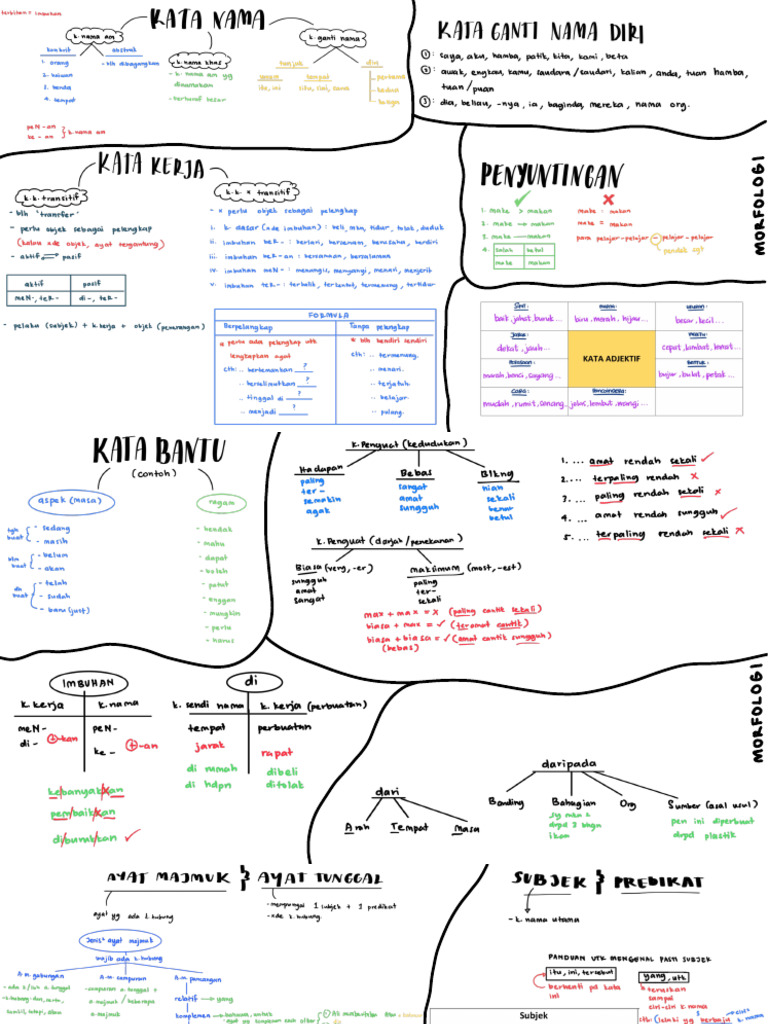 terbitan = imbuhan
KATA NAMA
k. nama am
konkrit
abstrak
1. orang
2. haiwan
3. benda
4. tempat
- blh dibayangkan
k. nama khas
- k. nama am yg
dinamakan
- berhuruf besar
k. ganti nama
tunjuk
diri
umum
tempat
itu, ini
situ, sini, sana
- pertama
- kedua
- ketiga
peN-an
ke - an
} k. nama am
KATA GANTI NAMA DIRI
①: saya, aku, hamba, patik, kita, kami, beta
②: awak, engkau, kamu, saudara/saudari, kalian, anda, tuan hamba,
tuan/puan
③: dia, beliau, -nya, ia, baginda, mereka, nama org.
KATA KERJA
k.k. transitif
- blh 'transfer'
- perlu objek sebagai pelengkap
(kalau xde objek, ayat tergantung)
- aktif ⇄ pasif
aktif
pasif
meN-, teR-
di-, teR-
- pelaku (subjek) + k.kerja + objek (penerangan)
k.k. x transitif
- x perlu objek sebagai pelengkap
i. k. dasar (xde imbuhan) : beli, mkn, tidur, tolak, duduk
ii. imbuhan beR- : berlari, bersenam, berusaha, berdiri
iii. imbuhan beR-an : bersamaan, bersalaman
iv. imbuhan meN- : menangis, menyanyi, menari, menjerit
v. imbuhan teR- : terbalik, tersentot, termenung, tertidur
FORMULA
Berpelengkap
Tanpa pelengkap
* perlu ada pelengkap utk
lengkapkan ayat
cth: .. bertemankan ?
.. berselimutkan ?
.. tinggal di ?
.. menjadi ?
* blh berdiri sendiri
cth: .. termenung.
.. menari.
.. terjatuh.
.. belajar.
.. pulang.
PENYUNTINGAN
✓
✗
1. make > makan
2. make → makan
3. make — makan
4. salah
betul
make
makan
make : makan
make = makan
para pelajar-pelajar - pelajar-pelajar
MORFOLOGI
Sifat:
baik, jahat, buruk...
Warna:
biru, merah, hijau...
Ukuran:
besar, kecil...
Jarak:
dekat, jauh...
KATA ADJEKTIF
Waktu:
cepat, lambat, lewat...
Perasaan:
marah, benci, sayang...
Bentuk:
bujur, bulat, petak...
Cara:
mudah, rumit, senang...
Pancaindera:
jelas, lembut, wangi...
KATA BANTU
(contoh)
aspek (masa)
ragam
tgh buat
- sedang
- masih
blm buat
- belum
- akan
dh buat
- telah
- sudah
- baru (just)
- hendak
- mahu
- dapat
- boleh
- patut
- enggan
- mungkin
- perlu
- harus
k. Penguat (kedudukan)
Hadapan
paling
ter-
semakin
agak
Bebas
sangat
amat
sungguh
Blkng
nian
sekali
benar
betul
k. Penguat (darjat/penekanan)
Biasa (very, -er)
sungguh
amat
sangat
maksimum (most, -est)
paling
ter-
sekali
max + max = x (paling cantik sekali)
biasa + max = ✓ (teramat cantik)
biasa + biasa = ✓ (amat cantik sungguh)
(bebas)
1. ... amat rendah sekali ✓
2. ... terpaling rendah x
3. ... paling rendah sekali x
4. ... amat rendah sungguh ✓
5. ... terpaling rendah sekali x
IMBUHAN
k. kerja
k. nama
meN-
di-
+kan
peN-
ke-
+-an
ke/banyak/kan
pem/baik/kan
di/buruk/kan ✓
di
k. sendi nama
k. kerja (perbuatan)
tempat
perbuatan
jarak
rapat
di rumah
dibeli
di hdpn
ditolak
MORFOLOGI
dari
Arah
Tempat
masa
daripada
Banding
Bahagian
drpd 3 bhgn
ikan
Org
Sumber (asal usul)
pen ini diperbuat
drpd plastik
AYAT MAJMUK & AYAT TUNGGAL
ayat yg ada k. hubung
- mempunyai 1 subjek + 1 predikat
- xde k. hubung
Jenis² ayat majmuk
wajib ada k. hubung
A.m. gabungan
A.m. campuran
A.m. pancangan
- campuran a. tunggal +
a. majmuk / beberapa
a. majmuk
relatif → yang
komplemen → bahawa, untuk
SUBJEK & PREDIKAT
- k. nama utama
PANDUAN UTK MENGENAL PASTI SUBJEK
itu, ini, tersebut
berhenti pd kata
ini
yang, utk
teruskan
sampai
ciri-ciri k. nama
Subjek